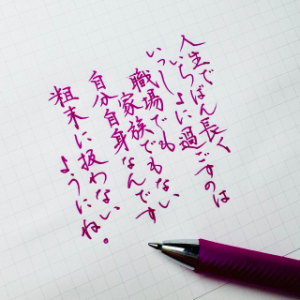 人生でいちばん長く
いっしょに過ごすのは
職場でもない
家族でもない
自分自身なんです
粗末に扱わない
ようにね。